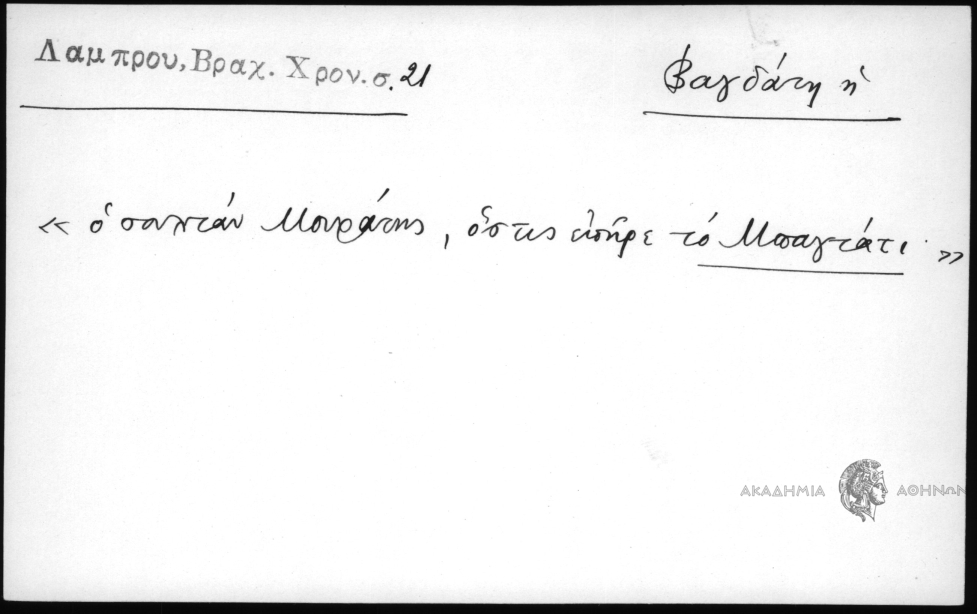 Λαμπρου, Βραχ. Χρον. σ. 21
Βαγδάτη ἡ
« ὁ σουλτάν Μουράτης, ὅστις ἐπῆρε τό Μπαγτάτι. »
ΑΚΑΔΗΜΙΑ ΑΘΗΝΩΝ